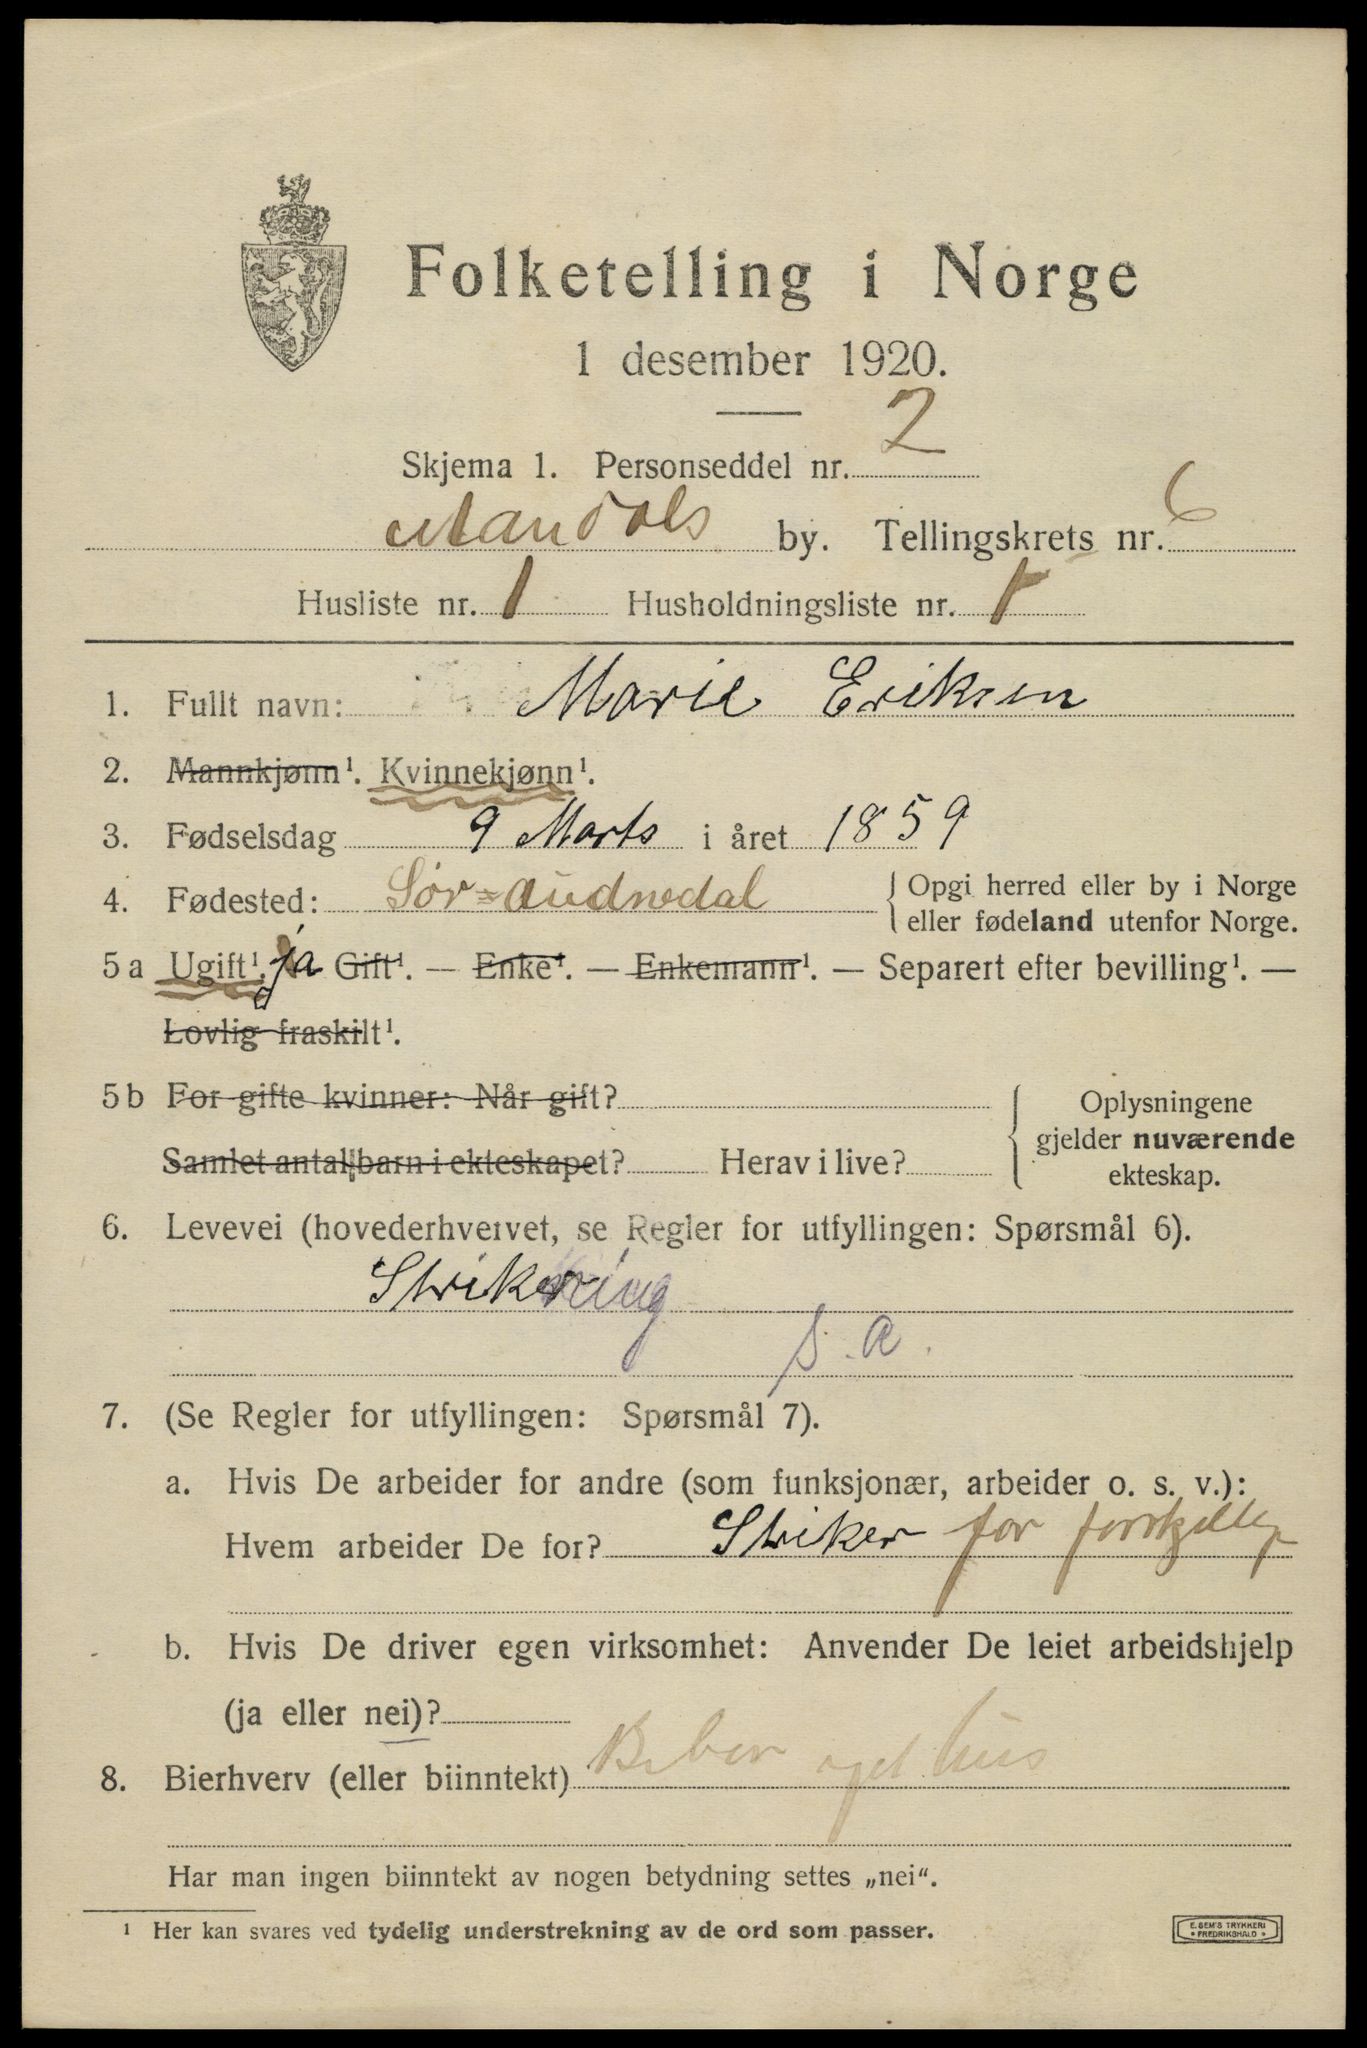 Folketelling i Norge
1 desember 1920.
Skjema 1. Personseddel nr. 2
Mandals by. Tellingskrets nr. 6
Husliste nr. 1 Husholdningsliste nr. 1
1. Fullt navn: Marie Eriksen
2. Mannkjønn¹. Kvinnekjønn¹.
3. Fødselsdag 9 Marts i året 1859
4. Fødested: Sør=Audnedal { Opgi herred eller by i Norge
eller fødeland utenfor Norge.
5a Ugift¹. ja Gift¹. — Enke¹. — Enkemann¹. — Separert efter bevilling¹. —
Lovlig fraskilt¹.
5b For gifte kvinner: Når gift?
Samlet antal barn i ekteskapet? Herav i live?
{ Oplysningene
gjelder nuværende
ekteskap.
6. Levevei (hovederhvervet, se Regler for utfyllingen: Spørsmål 6).
Strikning
S. a.
7. (Se Regler for utfyllingen: Spørsmål 7).
a. Hvis De arbeider for andre (som funksjonær, arbeider o. s. v.):
Hvem arbeider De for? Striker for forskjellige
b. Hvis De driver egen virksomhet: Anvender De leiet arbeidshjelp
(ja eller nei)?
8. Bierhverv (eller biinntekt) Bebor eget hus
Har man ingen biinntekt av nogen betydning settes „nei".
¹ Her kan svares ved tydelig understrekning av de ord som passer.
E. SEM'S TRYKKERI
• FREDRIKSHALD •